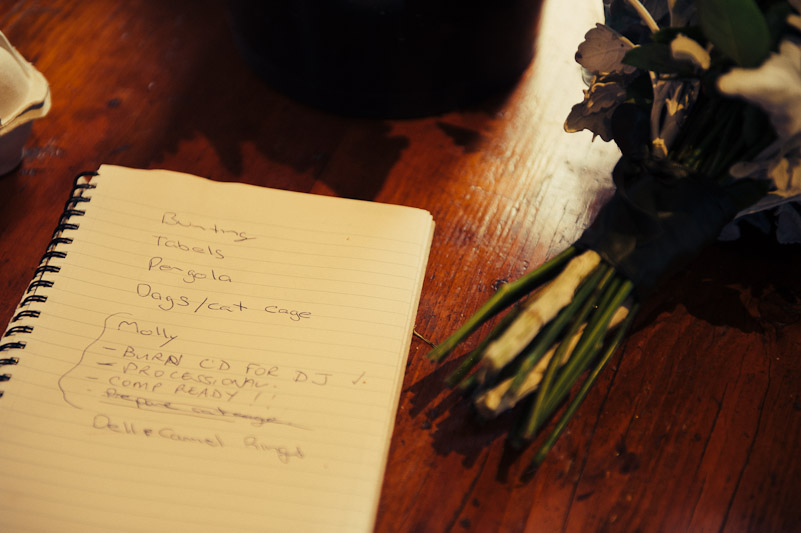 Bunting
Tabels
Pergola
Dags/cat cage
Molly
- BURN CD FOR DJ
- PROCESSIONAL
- COMP READY !!
- Prepare cat cage
Dell & Carmel